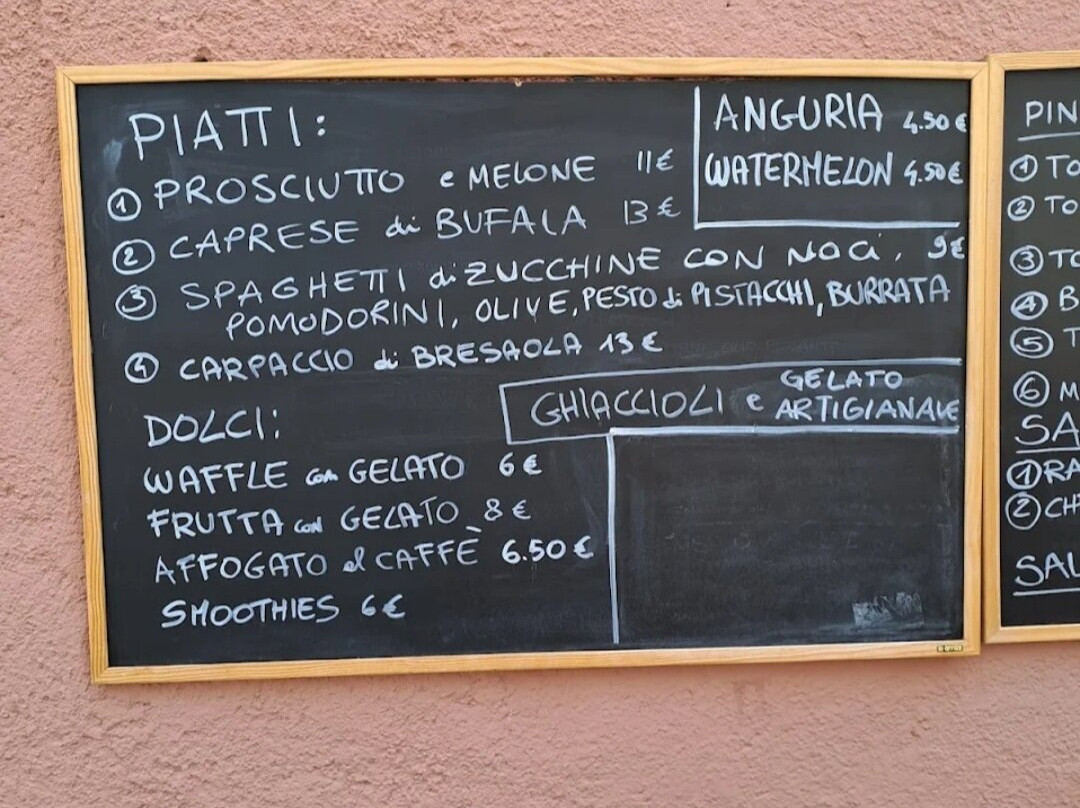 PIATTI:
① PROSCIUTTO e MELONE 11€
② CAPRESE di BUFALA 13€
③ SPAGHETTI di ZUCCHINE CON NOCI, 9€
POMODORINI, OLIVE, PESTO di PISTACCHI, BURRATA
④ CARPACCIO di BRESAOLA 13€
ANGURIA 4.50€
WATERMELON 4.50€
GHIACCIOLI e GELATO
ARTIGIANALE
DOLCI:
WAFFLE con GELATO 6€
FRUTTA con GELATO 8€
AFFOGATO al CAFFÈ 6.50€
SMOOTHIES 6€
PIN
① TO
② TO
③ TO
④ B
⑤ T
⑥ M
SA
① RA
② CH
SAL